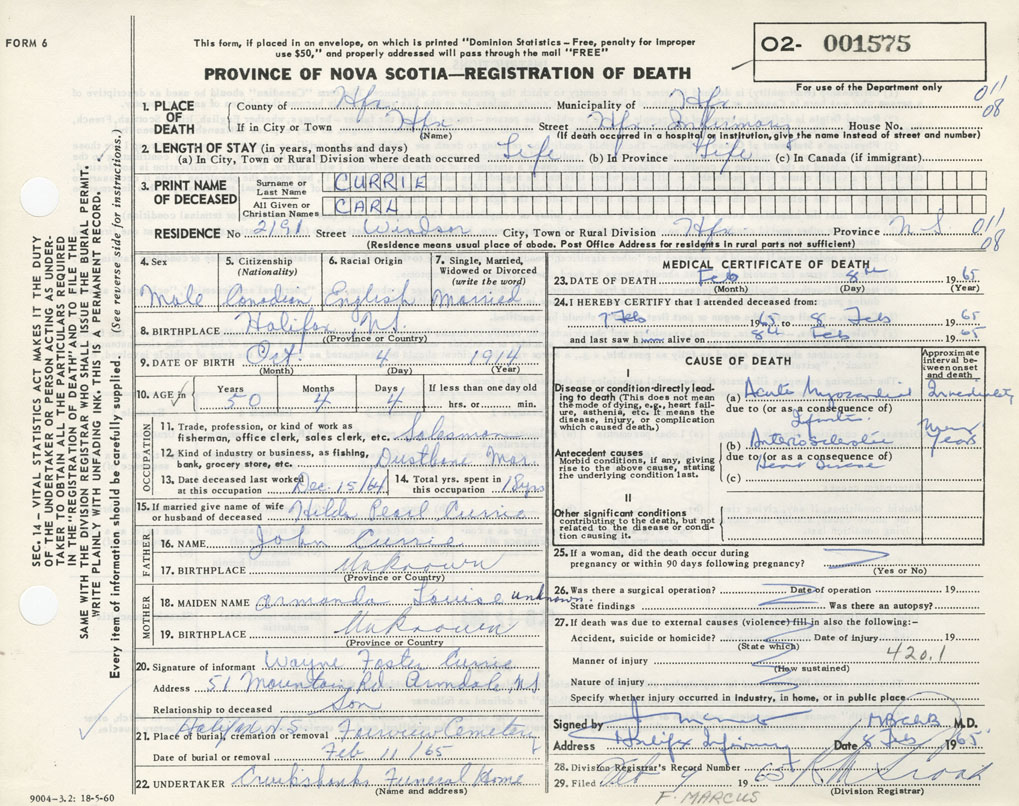 FORM 6
This form, if placed in an envelope, on which is printed "Dominion Statistics – Free, penalty for improper
use $50," and properly addressed will pass through the mail "FREE"
O2- 001575
PROVINCE OF NOVA SCOTIA—REGISTRATION OF DEATH
For use of the Department only
1. PLACE OF DEATH
County of Hfx Municipality of Hfx 011/08
If in City or Town Hfx Street Hfx Infirmary House No.
(Name) (If death occurred in a hospital or institution, give the name instead of street and number)
2. LENGTH OF STAY (in years, months and days)
(a) In City, Town or Rural Division where death occurred Life (b) In Province Life (c) In Canada (if immigrant)
3. PRINT NAME OF DECEASED
Surname or Last Name CURRIE
All Given or Christian Names CARL
RESIDENCE No 2191 Street Windsor City, Town or Rural Division Hfx Province N S 011/08
(Residence means usual place of abode. Post Office Address for residents in rural parts not sufficient)
4. Sex Male
5. Citizenship (Nationality) Canadian
6. Racial Origin English
7. Single, Married, Widowed or Divorced (write the word) Married
8. BIRTHPLACE Halifax NS.
(Province or Country)
9. DATE OF BIRTH Oct. 4 1914
(Month) (Day) (Year)
10. AGE in Years 50 Months 4 Days 4 If less than one day old hrs. or min.
OCCUPATION
11. Trade, profession, or kind of work as fisherman, office clerk, sales clerk, etc. Salesman
12. Kind of industry or business, as fishing, bank, grocery store, etc. Dustbane Mar.
13. Date deceased last worked at this occupation Dec. 15/64
14. Total yrs. spent in this occupation 18 yrs
15. If married give name of wife or husband of deceased Hilda Pearl Currie
FATHER
16. NAME John Currie
17. BIRTHPLACE Unknown
(Province or Country)
MOTHER
18. MAIDEN NAME Armanda Louise unknown.
19. BIRTHPLACE Unknown
(Province or Country)
20. Signature of informant Wayne Foster Currie
Address 51 Mountain Rd Armdale, NS
Relationship to deceased Son
21. Place of burial, cremation or removal Halifax, N.S. Fairview Cemetery
Date of burial or removal Feb 11/65
22. UNDERTAKER Cruikshanks Funeral Home
(Name and address)
9004-3.2: 18-5-60
MEDICAL CERTIFICATE OF DEATH
23. DATE OF DEATH Feb 8th 1965
(Month) (Day) (Year)
24. I HEREBY CERTIFY that I attended deceased from:
7 Feb 1965 to 8 Feb 1965
and last saw him alive on 8th Feb 1965
CAUSE OF DEATH
Approximate interval between onset and death
I
Disease or condition directly leading to death (This does not mean the mode of dying, e.g., heart failure, asthenia, etc. It means the disease, injury, or complication which caused death.)
(a) Acute Myocardial Immediately
due to (or as a consequence of)
Infarct.
(b) Arteriosclerotic Many Years
Antecedent causes
Morbid conditions, if any, giving rise to the above cause, stating the underlying condition last.
due to (or as a consequence of)
Heart Disease
(c)
II
Other significant conditions
contributing to the death, but not related to the disease or condition causing it.
25. If a woman, did the death occur during pregnancy or within 90 days following pregnancy?
(Yes or No)
26. Was there a surgical operation? Date of operation 19
State findings Was there an autopsy?
27. If death was due to external causes (violence) fill in also the following:–
Accident, suicide or homicide? Date of injury 19
(State which)
Manner of injury 420.1
(How sustained)
Nature of injury
Specify whether injury occurred in industry, in home, or in public place
Signed by MBChB M.D.
Address Halifax Infirmary Date 8 Feb 1965
28. Division Registrar's Record Number
29. Filed Feb 9 1965
(Division Registrar)
F. MARCUS
SEC. 14 – VITAL STATISTICS ACT MAKES IT THE DUTY
OF THE UNDERTAKER OR PERSON ACTING AS UNDER-
TAKER TO OBTAIN ALL THE PARTICULARS REQUIRED
IN THE "REGISTRATION OF DEATH" AND TO FILE THE
SAME WITH THE DIVISION REGISTRAR WHO SHALL ISSUE THE BURIAL PERMIT.
WRITE PLAINLY WITH UNFADING INK. THIS IS A PERMANENT RECORD.
Every item of information should be carefully supplied. (See reverse side for instructions.)